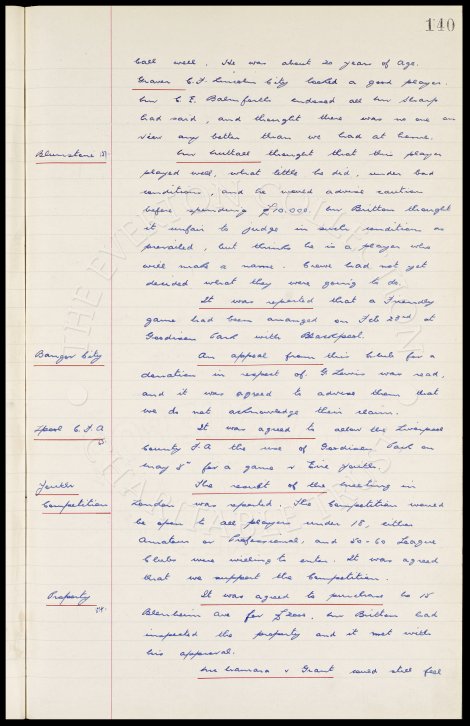 140
ball well. He was about 20 years of age.
Graver C.F. Lincoln City looked a good player.
Mr C.E. Balmforth endorsed all Mr Sharp
had said, and thought there was no one on
view any better than we had at home.
Blumstone
Mr Nuttall thought that this player
played well, what little he did, under bad
conditions, and he would advise caution
before spending £10.000. Mr Britton thought
it unfair to judge in such condition as
prevailed, but thinks he is a player who
will make a name. Crewe had not yet
decided what they were going to do.
It was reported that a Friendly
game had been arranged on Feb 23rd at
Goodison Park with Blackpool.
Bangor City
An appeal from this Club for a
donation in respect of G Lewis was read,
and it was agreed to advise them that
we do not acknowledge their claim.
Lpool C.F.A
It was agreed to allow the Liverpool
County F.A the use of Goodison Park on
May 8th for a game v Eire Youths.
Youths
Competition
The result of the meeting in
London was reported. The Competition would
be open to all players under 18, either
Amateur or Professional, and 50-60 League
Clubs were willing to enter. It was agreed
that we support the Competition.
Property
It was agreed to purchase No 15
Blenheim Ave for Mr Britton had
inspected the property and it met with
his approval.
McNamara & Grant could still feel
THE EVERTON COLLECTION
CHARITABLE TRUST